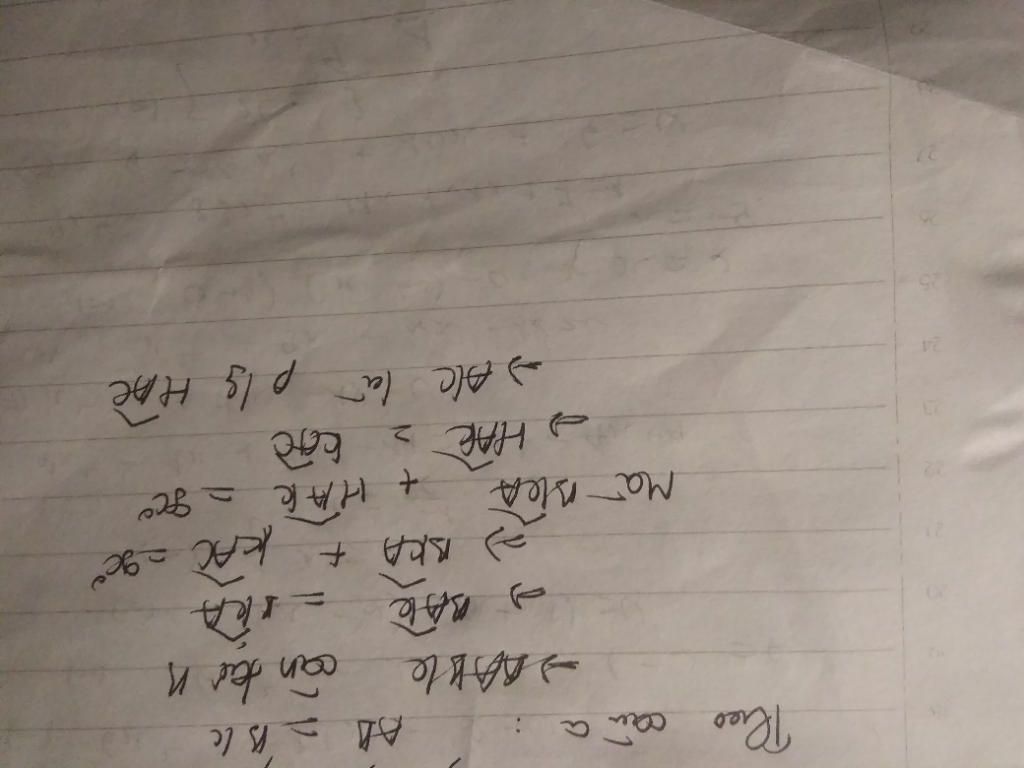 Theo câu a : AB = BK
⇒ ΔABK cân tại B
⇒ \widehat{BAK} = \widehat{BKA}
⇒ \widehat{BKA} + \widehat{KAC} = 90°
Mà \widehat{BKA} + \widehat{HAK} = 90°
⇒ \widehat{HAK} = \widehat{KAC}
⇒ AK là p/g \widehat{HAC}